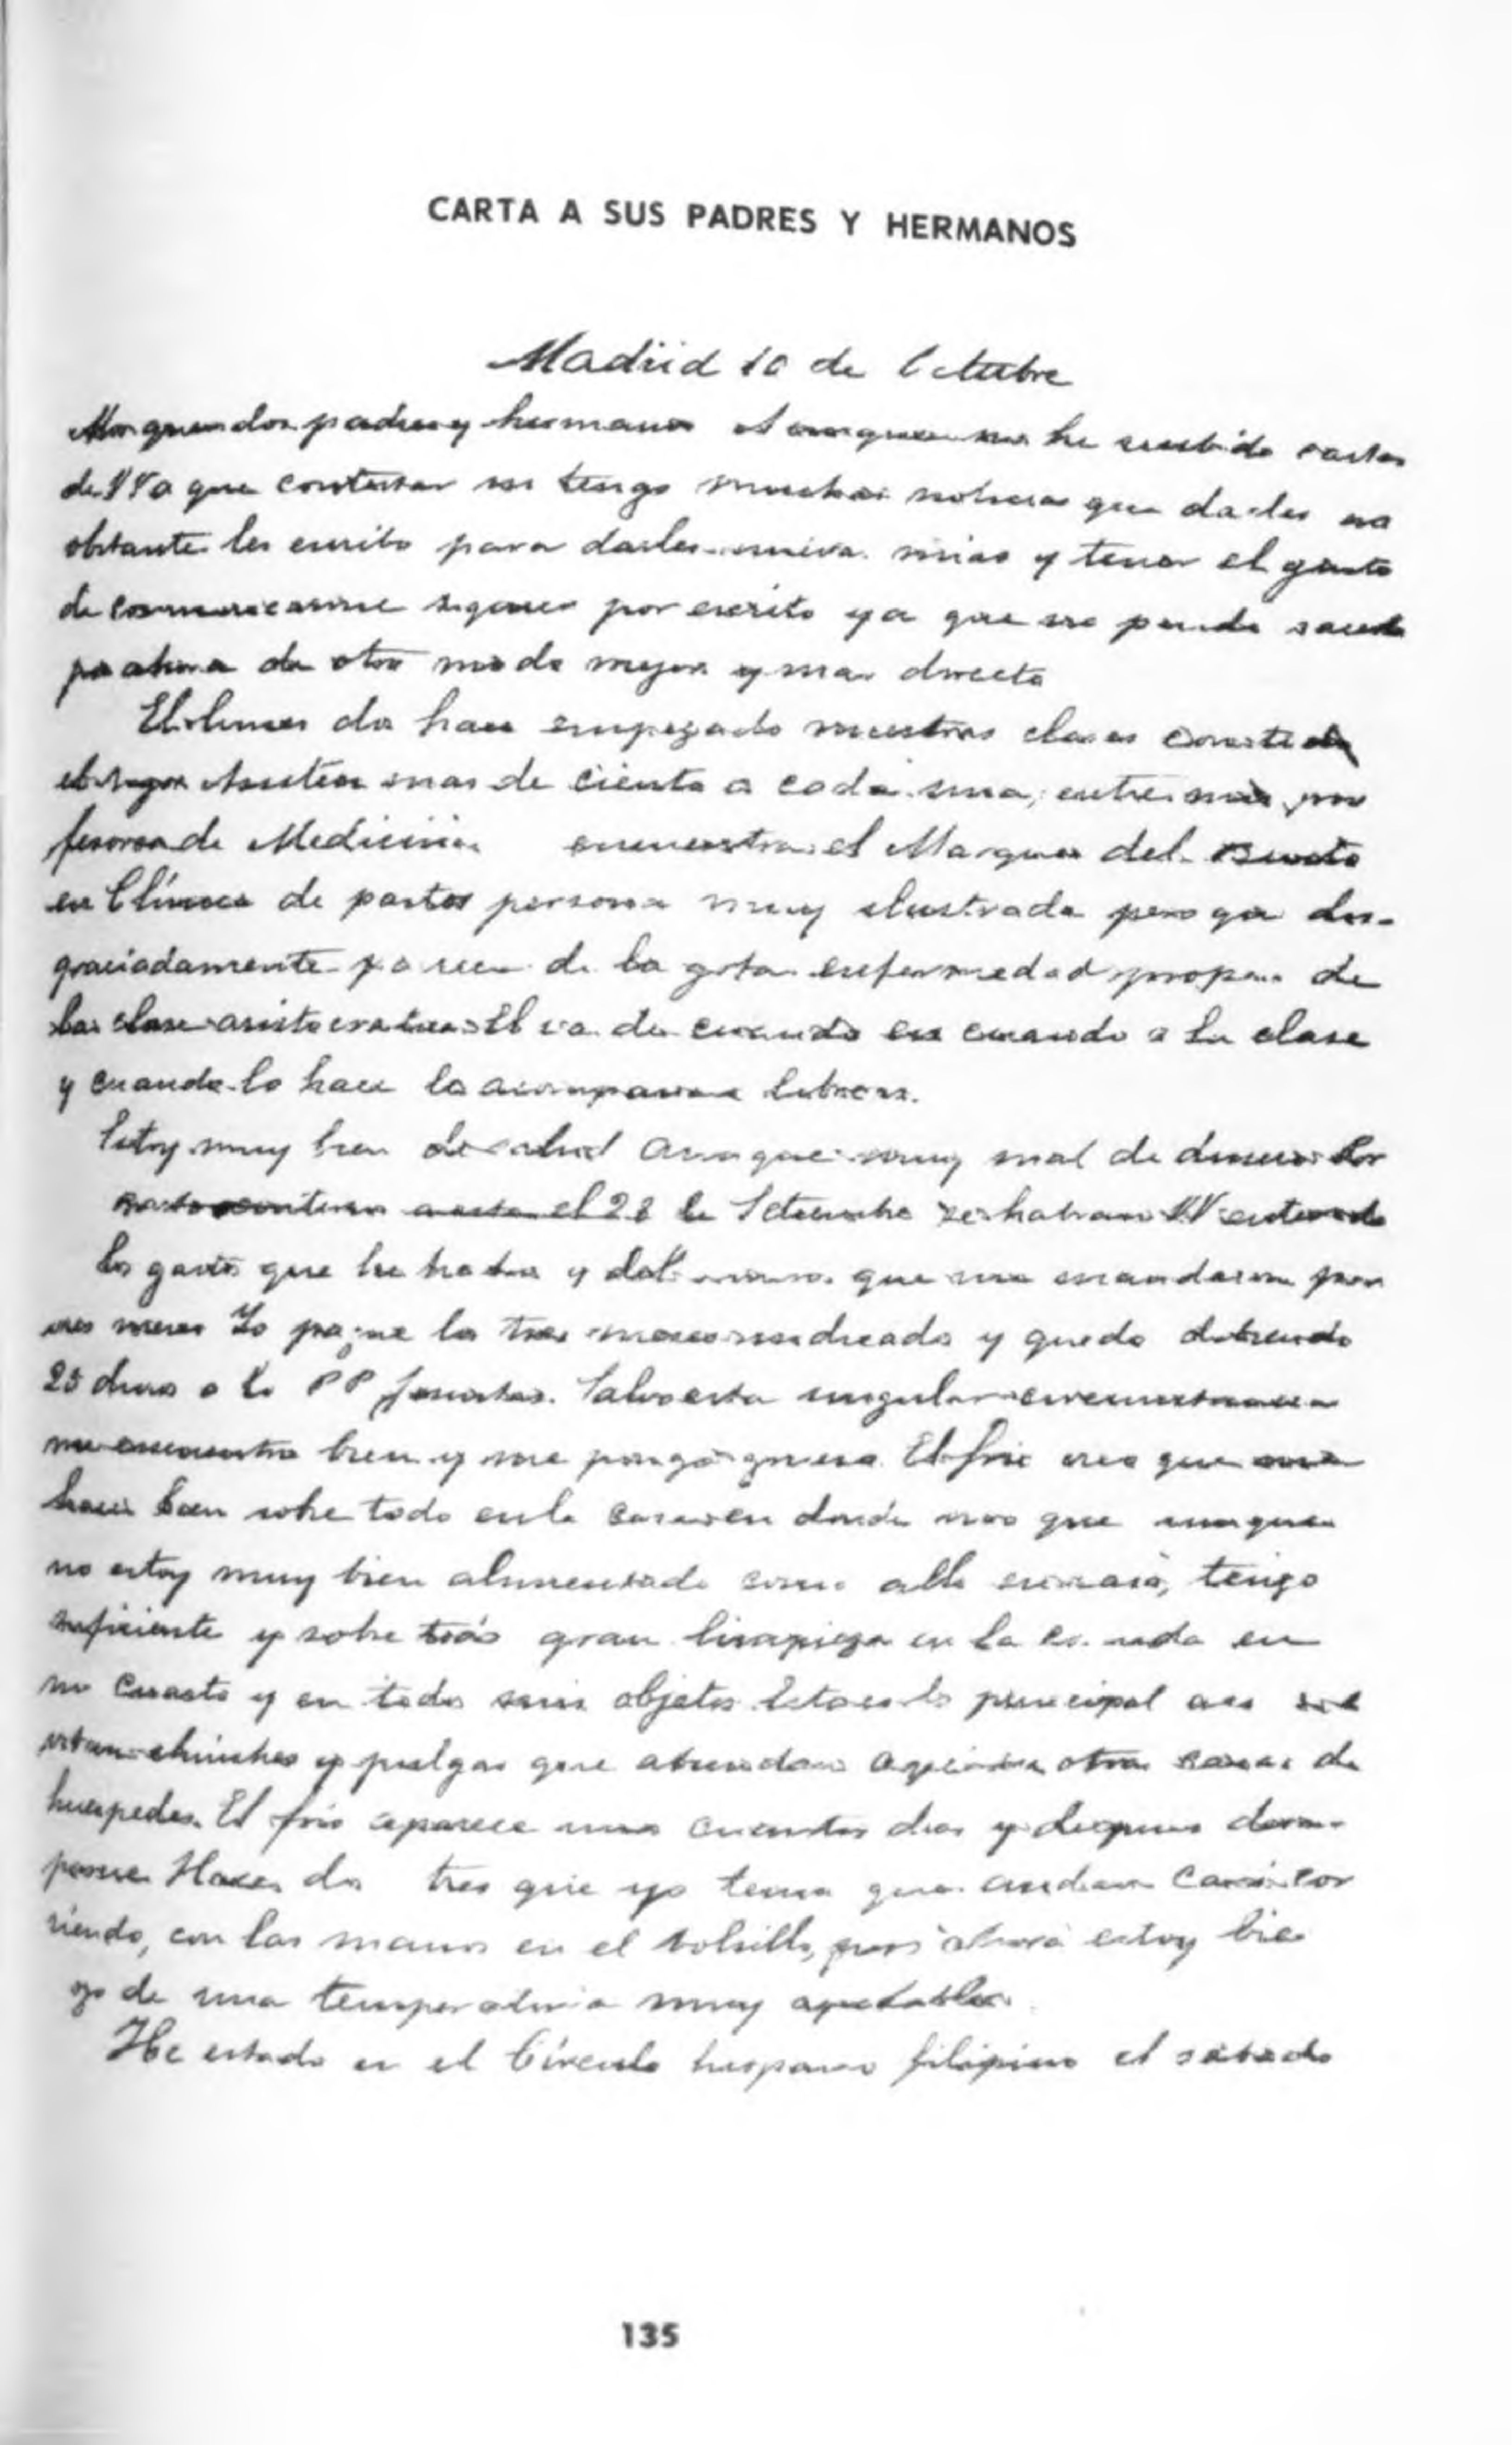 CARTA A SUS PADRES Y HERMANOS
Madrid 10 de Octubre
Mis queridos padres y hermanos Aunque no he recibido cartas
de VV a que contestar no tengo muchas noticias que darles no
obstante les escribo para darles nuevas mias y tener el gusto
de comunicarme siquiera por escrito ya que no puede
por ahora de otro modo mejor y mas directo
El lunes dos han empezado nuestras clases
Asisten mas de ciento a cada una, entre mis pro
fesores de Medicina encuentra el Marques del Busto
en Clínica de partos persona muy ilustrada pero que des-
graciadamente padece de la gota enfermedad propia de
las clases aristocraticas El va de cuando en cuando a la clase
y cuando lo hace lo acompañan
Estoy muy bien de salud aunque muy mal de dinero Por
el 28 de Setiembre se habran VV enterado
los gastos que he hecho y del que me mandaron por
tres meses Yo pague los tres meses y quedo debiendo
25 duros a los PP Jesuitas. Salvo esta singular circunstancia
me encuentro bien y me pongo grueso El frio creo que me
hace bien sobre todo en la casa en donde vivo que aunque
no estoy muy bien alimentado como alla en casa, tengo
suficiente y sobre todo gran limpieza en la comida en
mi cuarto y en todos mis objetos Esto es lo principal aca
chinches y pulgas que abundan aqui en otras casas de
huespedes. El frio aparece unos cuantos dias y despues desa-
parece Hace dos tres que yo tenia que andar casi cor
riendo, con las manos en el bolsillo, pero ahora estoy bie
go de una temperatura muy agradable.
He estado en el Círculo hispano filipino el sábado
135